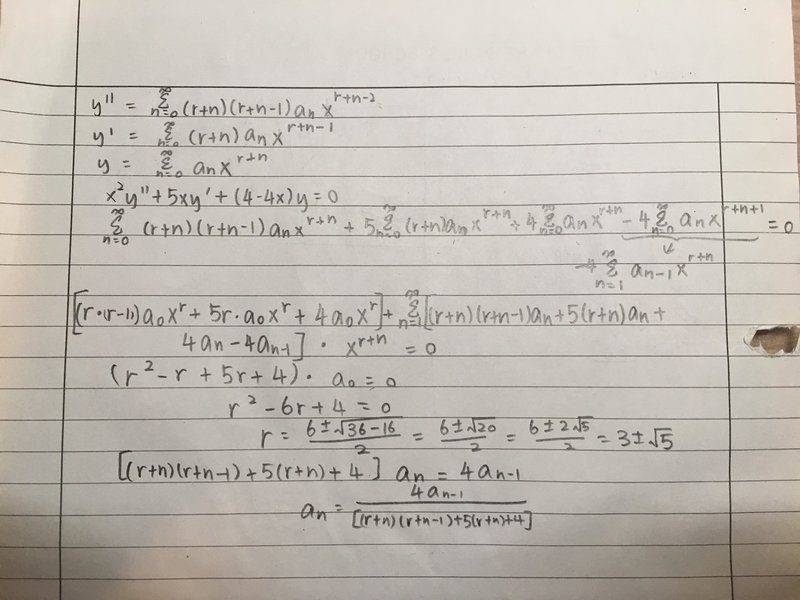 y'' = ∑_{n=0}^{∞} (r+n)(r+n-1) a_n x^{r+n-2}
y' = ∑_{n=0}^{∞} (r+n) a_n x^{r+n-1}
y = ∑_{n=0}^{∞} a_n x^{r+n}
x²y'' + 5xy' + (4-4x)y = 0
∑_{n=0}^{∞} (r+n)(r+n-1) a_n x^{r+n} + 5∑_{n=0}^{∞} (r+n) a_n x^{r+n} + 4∑_{n=0}^{∞} a_n x^{r+n} - 4∑_{n=0}^{∞} a_n x^{r+n+1} = 0
→ ∑_{n=1}^{∞} a_{n-1} x^{r+n}
[(r·(r-1)) a_0 x^r + 5r·a_0 x^r + 4a_0 x^r] + ∑_{n=1}^{∞} [(r+n)(r+n-1) a_n + 5(r+n) a_n +
4a_n - 4a_{n-1}] · x^{r+n} = 0
(r² - r + 5r + 4) · a_0 = 0
r² - 6r + 4 = 0
r = (6 ± √36-16)/2 = (6 ± √20)/2 = (6 ± 2√5)/2 = 3 ± √5
[(r+n)(r+n-1) + 5(r+n) + 4] a_n = 4a_{n-1}
a_n = 4a_{n-1}/[(r+n)(r+n-1)+5(r+n)+4]